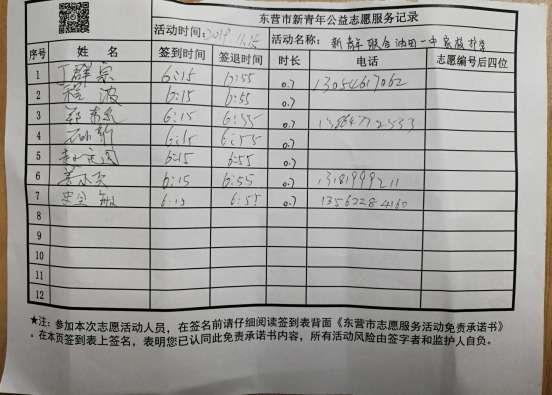 东营市新青年公益志愿服务记录
活动时间：2019 11.15 活动名称：新青年联合油田一中家校护学
序号 姓 名 签到时间 签退时间 时长 电话 志愿编号后四位
1 丁群 6:15 6:55 0.7 13054617062
2 程波 6:15 6:55 0.7
3 6:15 6:55 0.7
4 6:15 6:55 0.7
5 6:15 6:55 0.7
6 6:15 6:55 0.7 13181999211
7 6:15 6:55 0.7 13562284160
8
9
10
11
12
★注：参加本次志愿活动人员，在签名前请仔细阅读签到表背面《东营市志愿服务活动免责承诺书》
。在本页签到表上签名，表明您已认同此免责承诺书内容，所有活动风险由签字者和监护人自负。